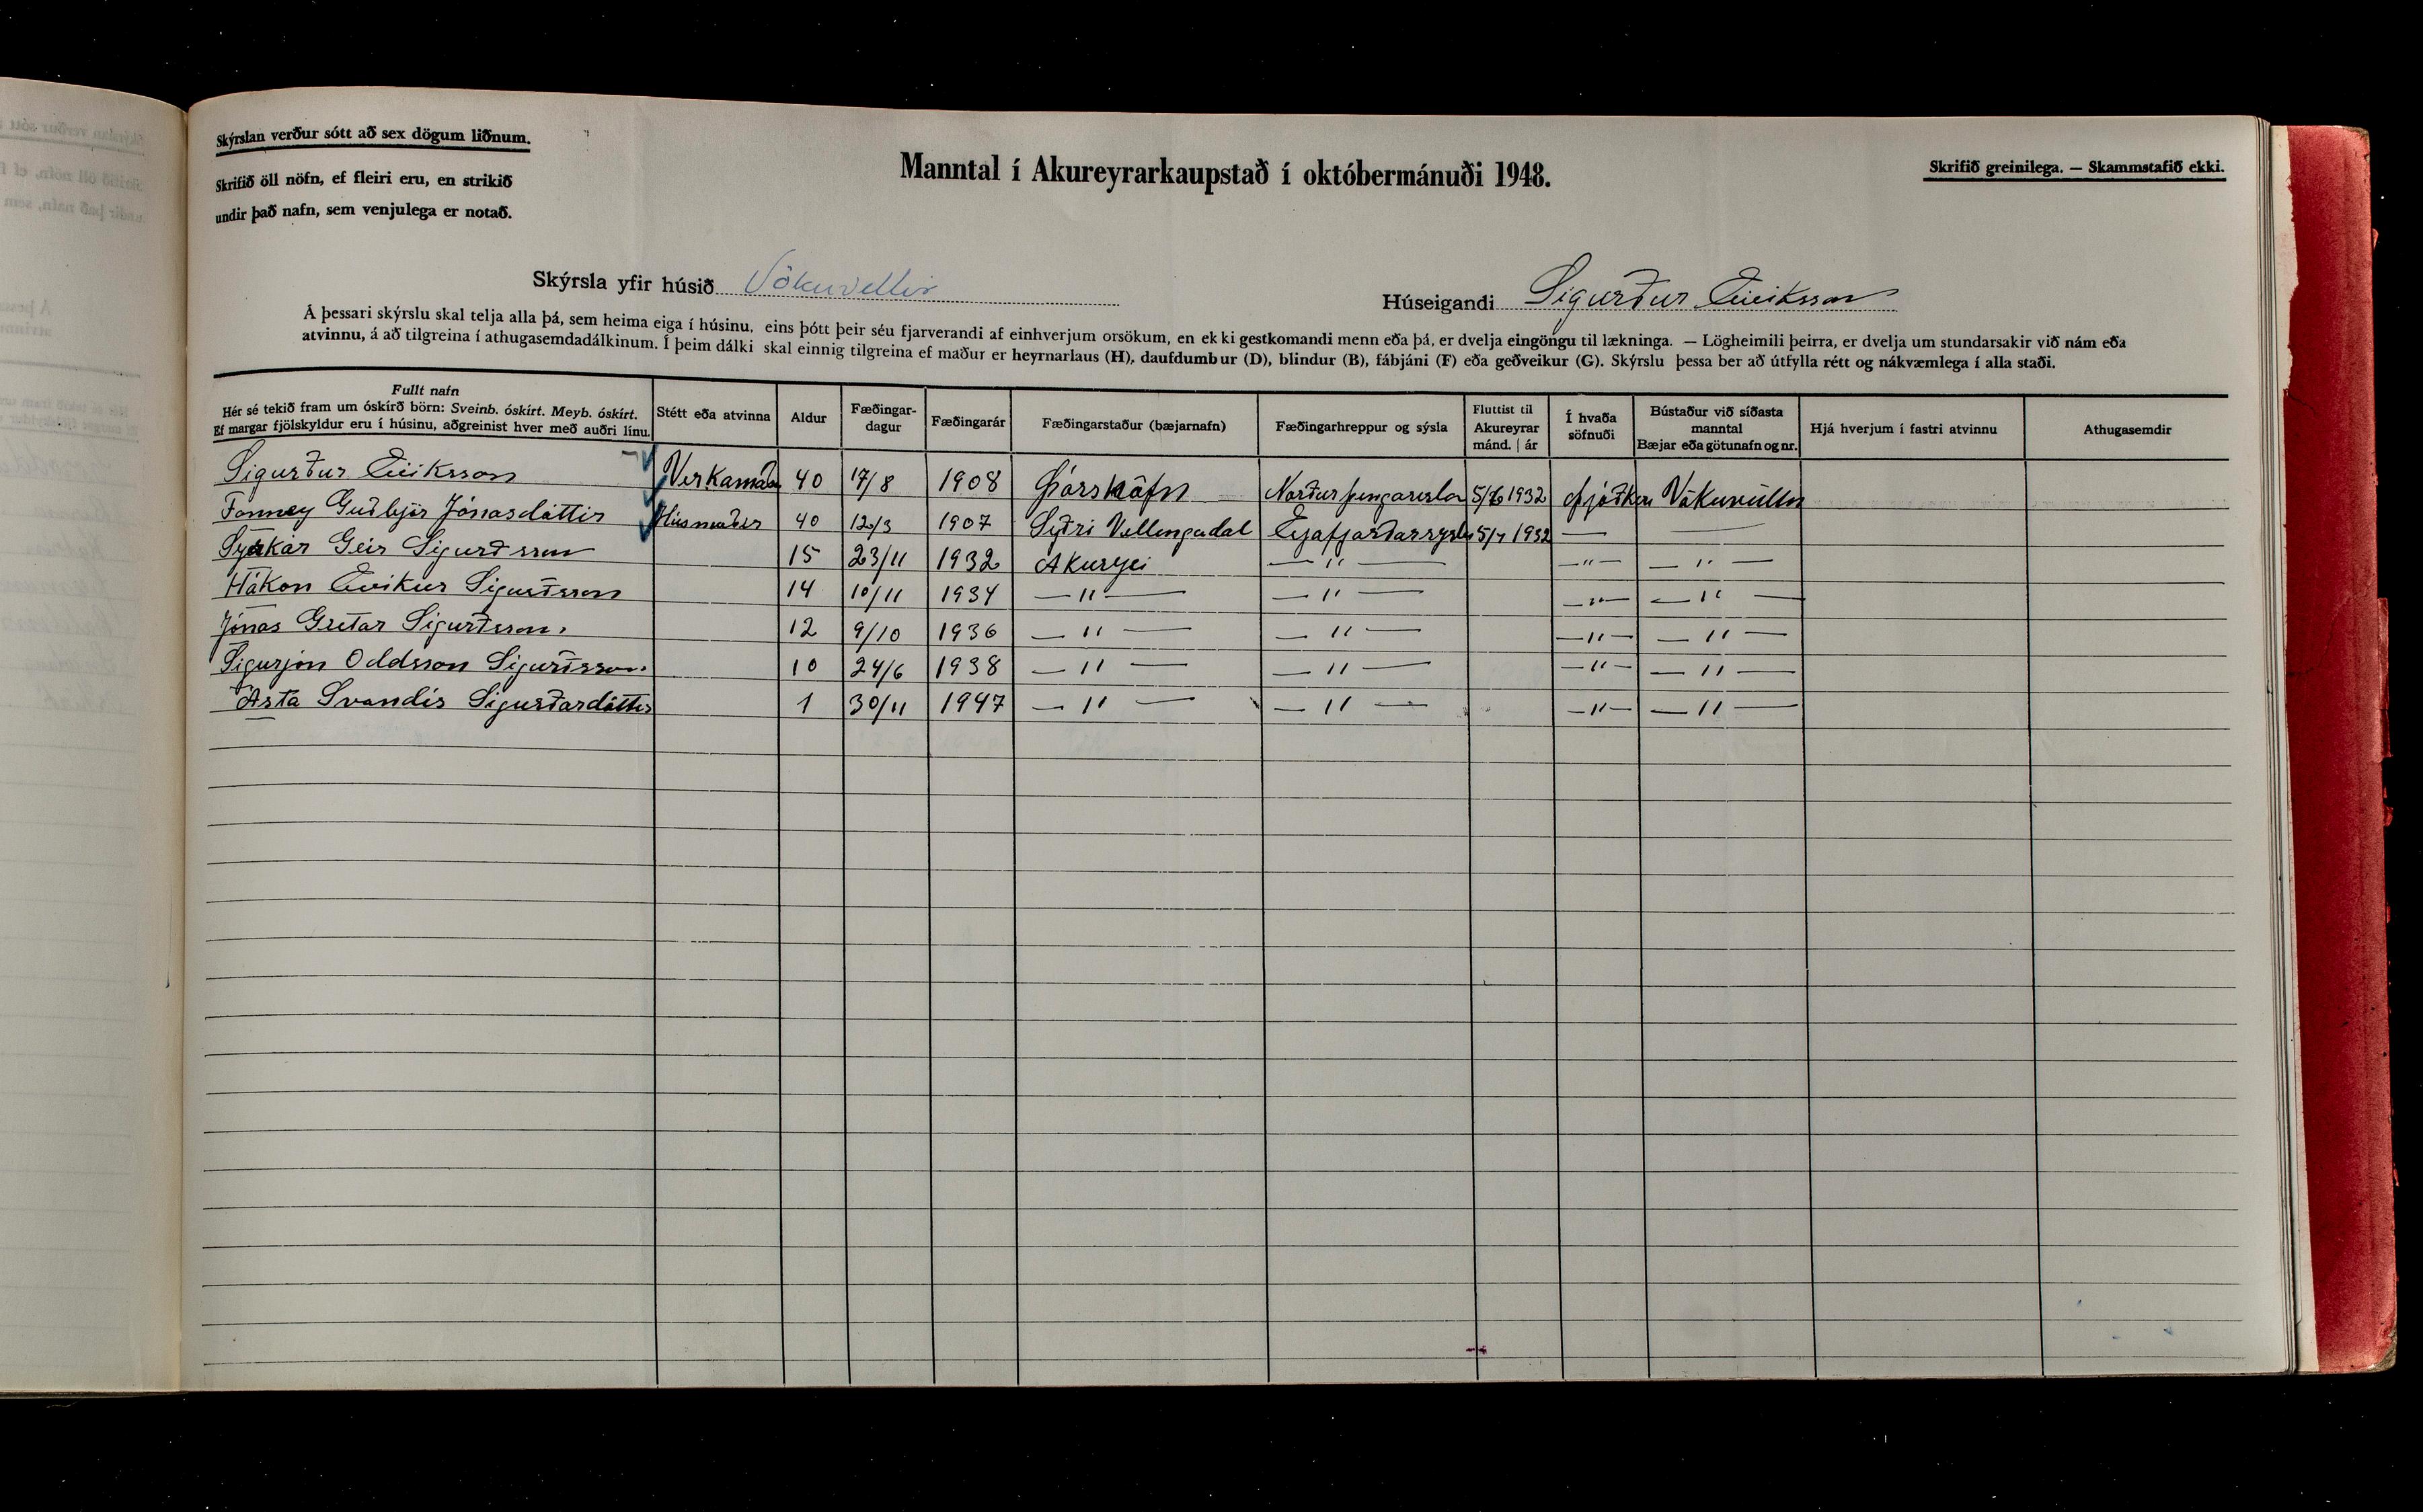 Skýrslan verður sótt að sex dögum liðnum.
Skrifið öll nöfn, ef fleiri eru, en strikið
undir það nafn, sem venjulega er notað.
Manntal í Akureyrarkaupstað í októbermánuði 1948.
Skrifið greinilega. — Skammstafið ekki.
Skýrsla yfir húsið Vökuvellir
Húseigandi Sigurður Eiríksson
Á þessari skýrslu skal telja alla þá, sem heima eiga í húsinu, eins þótt þeir séu fjarverandi af einhverjum orsökum, en ekki gestkomandi menn eða þá, er dvelja eingöngu til lækninga. — Lögheimili þeirra, er dvelja um stundarsakir við nám eða
atvinnu, á að tilgreina í athugasemdadálkinum. Í þeim dálki skal einnig tilgreina ef maður er heyrnarlaus (H), daufdumbur (D), blindur (B), fábjáni (F) eða geðveikur (G). Skýrslu þessa ber að útfylla rétt og nákvæmlega í alla staði.
Fullt nafn
Hér sé tekið fram um óskírð börn: Sveinb. óskírt. Meyb. óskírt.
Ef margar fjölskyldur eru í húsinu, aðgreinist hver með auðri línu.
Stétt eða atvinna
Aldur
Fæðingar-
dagur
Fæðingarár
Fæðingarstaður (bæjarnafn)
Fæðingarhreppur og sýsla
Fluttist til
Akureyrar
mánd. | ár
Í hvaða
söfnuði
Bústaður við síðasta
manntal
Bæjar eða götunafn og nr.
Hjá hverjum í fastri atvinnu
Athugasemdir
Sigurður Eiríksson Verkamaðr 40 17/8 1908 Þórshöfn Norðurþingarsla 5/6 1932 þjóðkir Vökuvöllr
Fanney Guðbjör Jónasdóttir Húsmóðir 40 12/3 1907 Syðri Vellengadal Eyjafjarðarsysl 5/7 1932 —
Geir Sigurðsson 15 23/11 1932 Akureyri — " — — " — — " —
Hákon Eiríkur Sigurðsson 14 10/11 1934 — " — — " — — " — — " —
Jónas Gretar Sigurðsson. 12 9/10 1936 — " — — " — — " — — " —
Sigurjón Oddsson Sigurðsson. 10 24/6 1938 — " — — " — — " — — " —
Ásta Svandís Sigurðardóttir 1 30/11 1947 — " — — " — — " — — " —